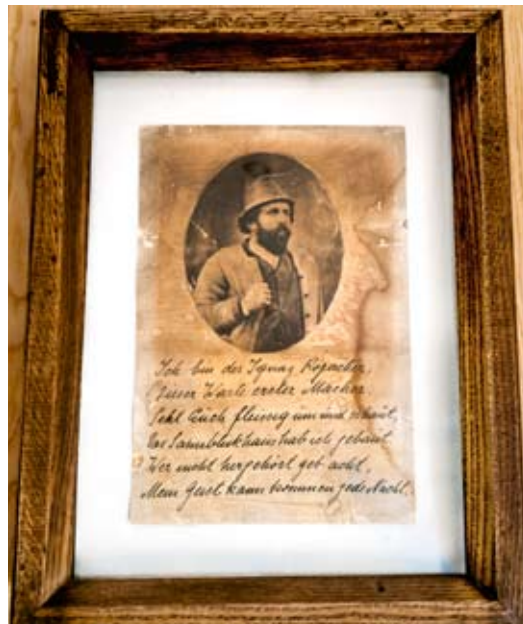 Ich bin der Ignaz Rojacher,
Dieser Warte erster Macher,
Seht Euch fleissig um und schaut,
Das Sonnblickhaus hab ich gebaut.
Wer nicht hergehört geb acht,
Mein Geist kann kommen jede Nacht.